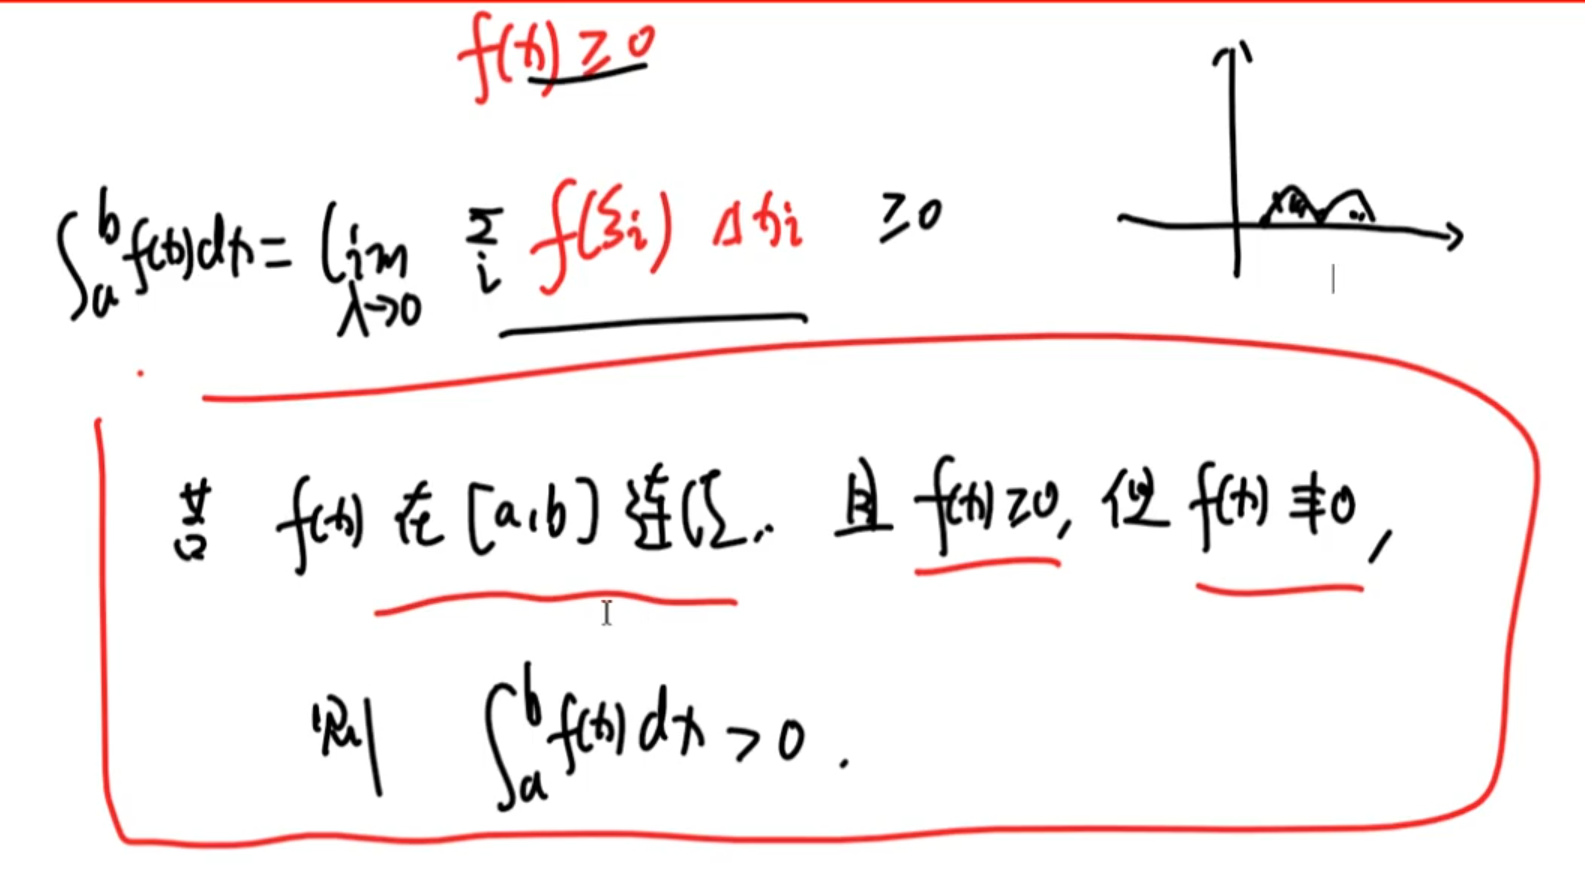 f(x) ≥ 0
∫_a^b f(x)dx = lim_{λ→0} Σ_i f(ξ_i) Δx_i ≥ 0
若 f(x) 在 [a,b] 连续. 且 f(x) ≥ 0, 但 f(x) ≢ 0,
则 ∫_a^b f(x) dx > 0 .